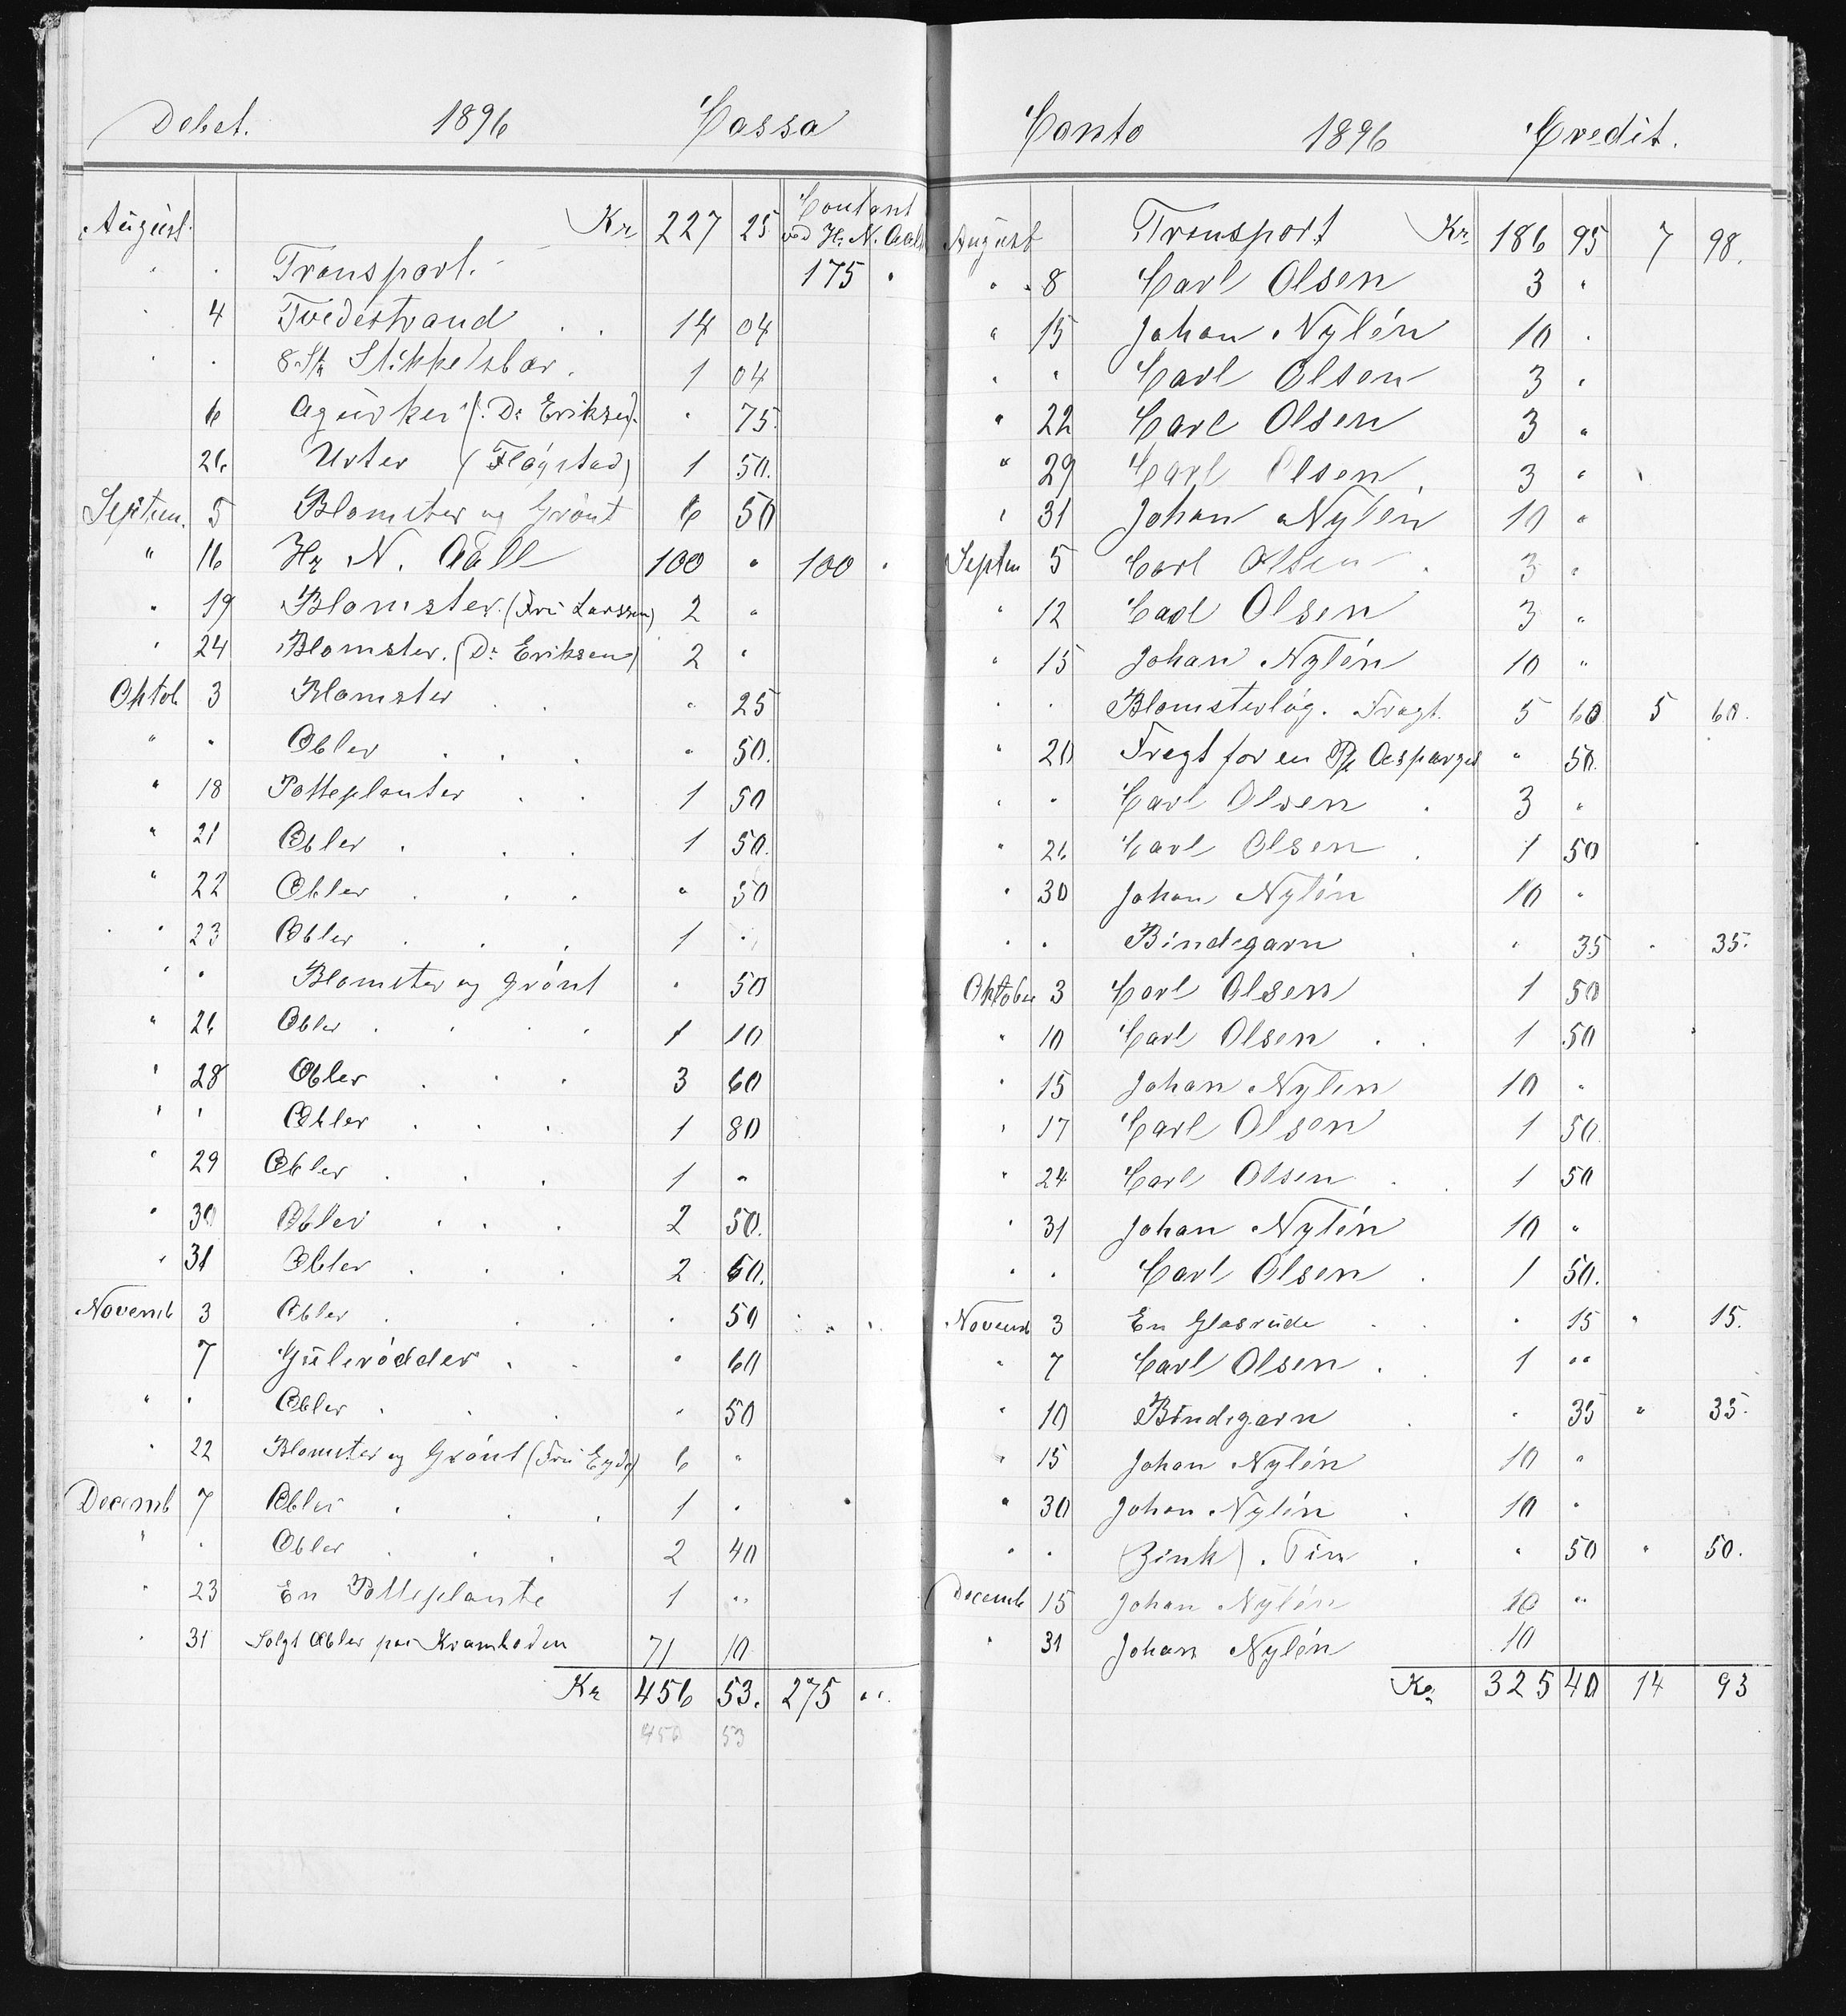 Debet. 1896 Cassa
August. Kr 227 25 Contant ved Hr. N. Aall
" " Transport. 175 "
" 4 Tvedestrand 14 04
" " 8 St Stikkelsbær. 1 04
6 Agurker (: Dr Eriksen). " 75.
26 Urter (Fløgstad) 1 50.
Septem. 5 Blomster og Grønt 6 50
" 16 Hr N. Aall 100 " 100 "
" 19 Blomster. (Frü Larssen) 2 "
" 24 Blomster. (Dr Eriksen) 2 "
Oktob 3 Blomster " 25
" " Æbler " 50.
" 18 Potteplanter 1 50
" 21 Æbler 1 50.
" 22 Æbler " 50
" 23 Æbler 1 "
" " Blomster og grønt " 50
" 26 Æbler 1 10
" 28 Æbler 3 60
" " Æbler 1 80
" 29 Æbler 1 "
" 30 Æbler 2 50.
" 31 Æbler 2 60.
Novemb 3 Æbler " 50
7 Gülerødder " 60
" " Æbler " 50
" 22 Blomster og Grønt (Frü Eyde) 6 "
Decemb 7 Æbler 1 "
" " Æbler 2 40
" 23 En Potteplante 1 "
" 31 Solgt Æbler paa Kramboden 71 10
Kr 456 53. 275 "
456 53
Conto 1896 Credit.
August Transport Kr. 186 95 7 98.
" 8 Carl Olsen 3 "
" 15 Johan Nylén 10 "
" " Carl Olsen 3 "
" 22 Carl Olsen 3 "
" 29 Carl Olsen. 3 "
" 31 Johan Nylén 10 "
Septem 5 Carl Olsen 3 "
" 12 Carl Olsen 3 "
" 15 Johan Nylén 10 "
" " Blomsterløg. Fragt. 5 60 5 60.
" 20 Fragt for en Aesparges " 50.
" " Carl Olsen 3 "
" 26 Carl Olsen 1 50
" 30 Johan Nylén 10 "
" " Bindegarn " 35 " 35.
Oktober 3 Carl Olsen 1 50
" 10 Carl Olsen 1 50
" 15 Johan Nylen 10 "
" 17 Carl Olsen 1 50.
" 24 Carl Olsen 1 50
" 31 Johan Nylén 10 "
" " Carl Olsen 1 50.
Novemb 3 En Glasrüde " 15 " 15.
" 7 Carl Olsen 1 "
" 10 Bindegarn " 35 " 35.
" 15 Johan Nylén 10 "
" 30 Johan Nylén 10 "
" " (Zink). Tin " 50 " 50.
Decemb 15 Johan Nylén 10 "
" 31 Johan Nylén 10
Kr. 325 40 14 93